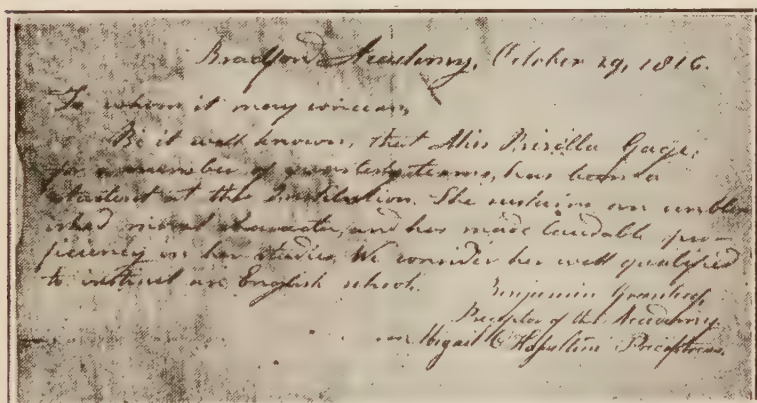 Bradford Academy, October 29, 1816.
To whom it may concern,
Be it well known, that Miss Prisilla Gage,
for a number of quarterly terms, has been a
student at this Institution. She sustains an unblem
ished moral character, and has made laudable pro-
ficiency in her studies. We consider her well qualified
to instruct an English school.
Benjamin Greenleaf,
Preceptor of the Academy
Abigail C Hasseltine Preceptress.